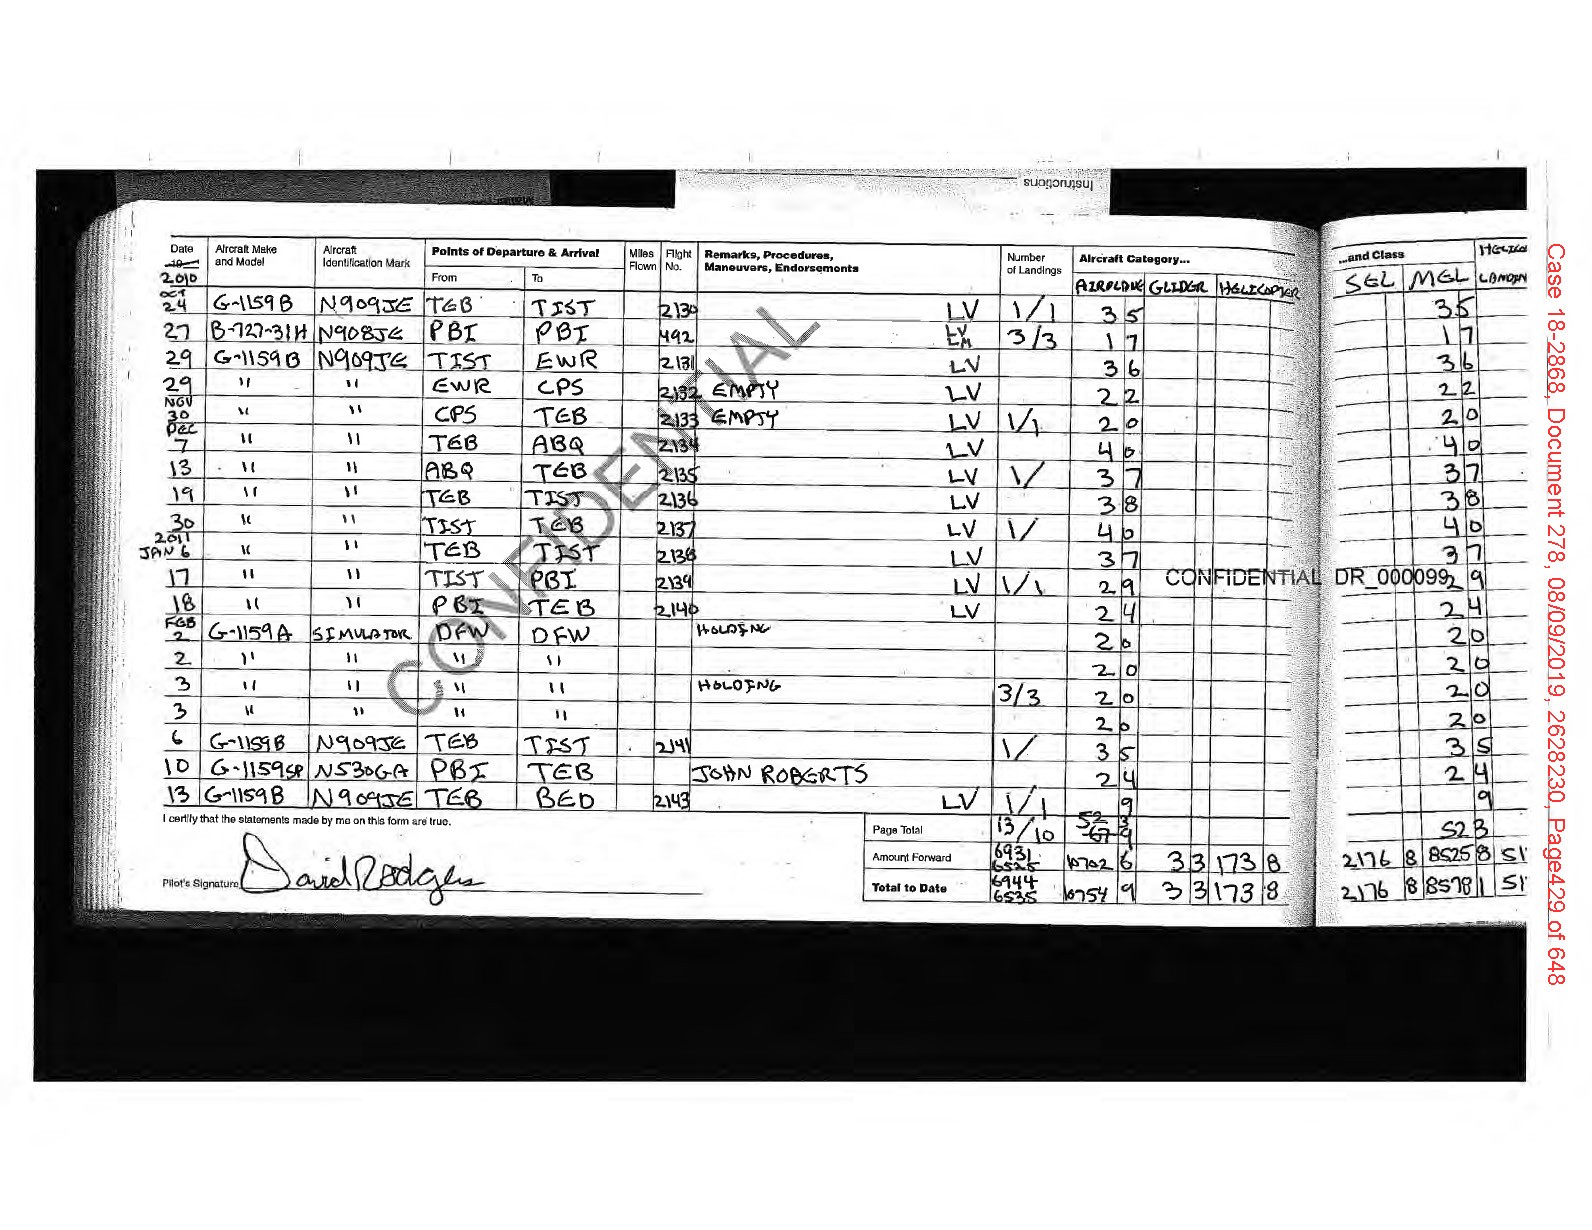 Instructions
Date Aircraft Make and Model Aircraft Identification Mark Points of Departure & Arrival Miles Flown Flight No. Remarks, Procedures, Maneuvers, Endorsements Number of Landings Aircraft Category... ...and Class HELICO
19 2010 From To AIRPLANE GLIDER HELICOPTER SEL MEL LANDIN
OCT 24 G-1159B N909JE TEB TIST 2130 LV 1/1 3 5 3 5
27 B-727-31H N908JE PBI PBI 492 LV LM 3/3 1 7 1 7
29 G-1159B N909JE TIST EWR 2131 LV 3 6 3 6
29 " " EWR CPS 2132 EMPTY LV 2 2 2 2
NOV 30 " " CPS TEB 2133 EMPTY LV 1/1 2 0 2 0
DEC 7 " " TEB ABQ 2134 LV 4 0 4 0
13 " " ABQ TEB 2135 LV 1/ 3 7 3 7
19 " " TEB TIST 2136 LV 3 8 3 8
30 " " TIST TEB 2137 LV 1/ 4 0 4 0
2011 JAN 6 " " TEB TIST 2138 LV 3 7 3 7
17 " " TIST PBI 2139 LV 1/1 2 9 2 9
CONFIDENTIAL DR_000099
18 " " PBI TEB 2140 LV 2 4 2 4
FEB 2 G-1159A SIMULATOR DFW DFW HOLDING 2 0 2 0
2 " " " " 2 0 2 0
3 " " " " HOLDING 3/3 2 0 2 0
3 " " " " 2 0 2 0
6 G-1159B N909JE TEB TIST 2141 1/ 3 5 3 5
10 G-1159SP N530GA PBI TEB JOHN ROBERTS 2 4 2 4
13 G-1159B N909JE TEB BED 2143 LV 1/1 9 9
I certify that the statements made by me on this form are true.
Page Total 13/10 52 3 67 9 52 3
Amount Forward 6931 6525 10702 6 3 3 173 8 2176 8 8525 8 51
Pilot's Signature David Rodgers
Total to Date 6944 6535 10754 9 3 3 173 8 2176 8 8578 1 51
CONFIDENTIAL
Case 18-2868, Document 278, 08/09/2019, 2628230, Page429 of 648